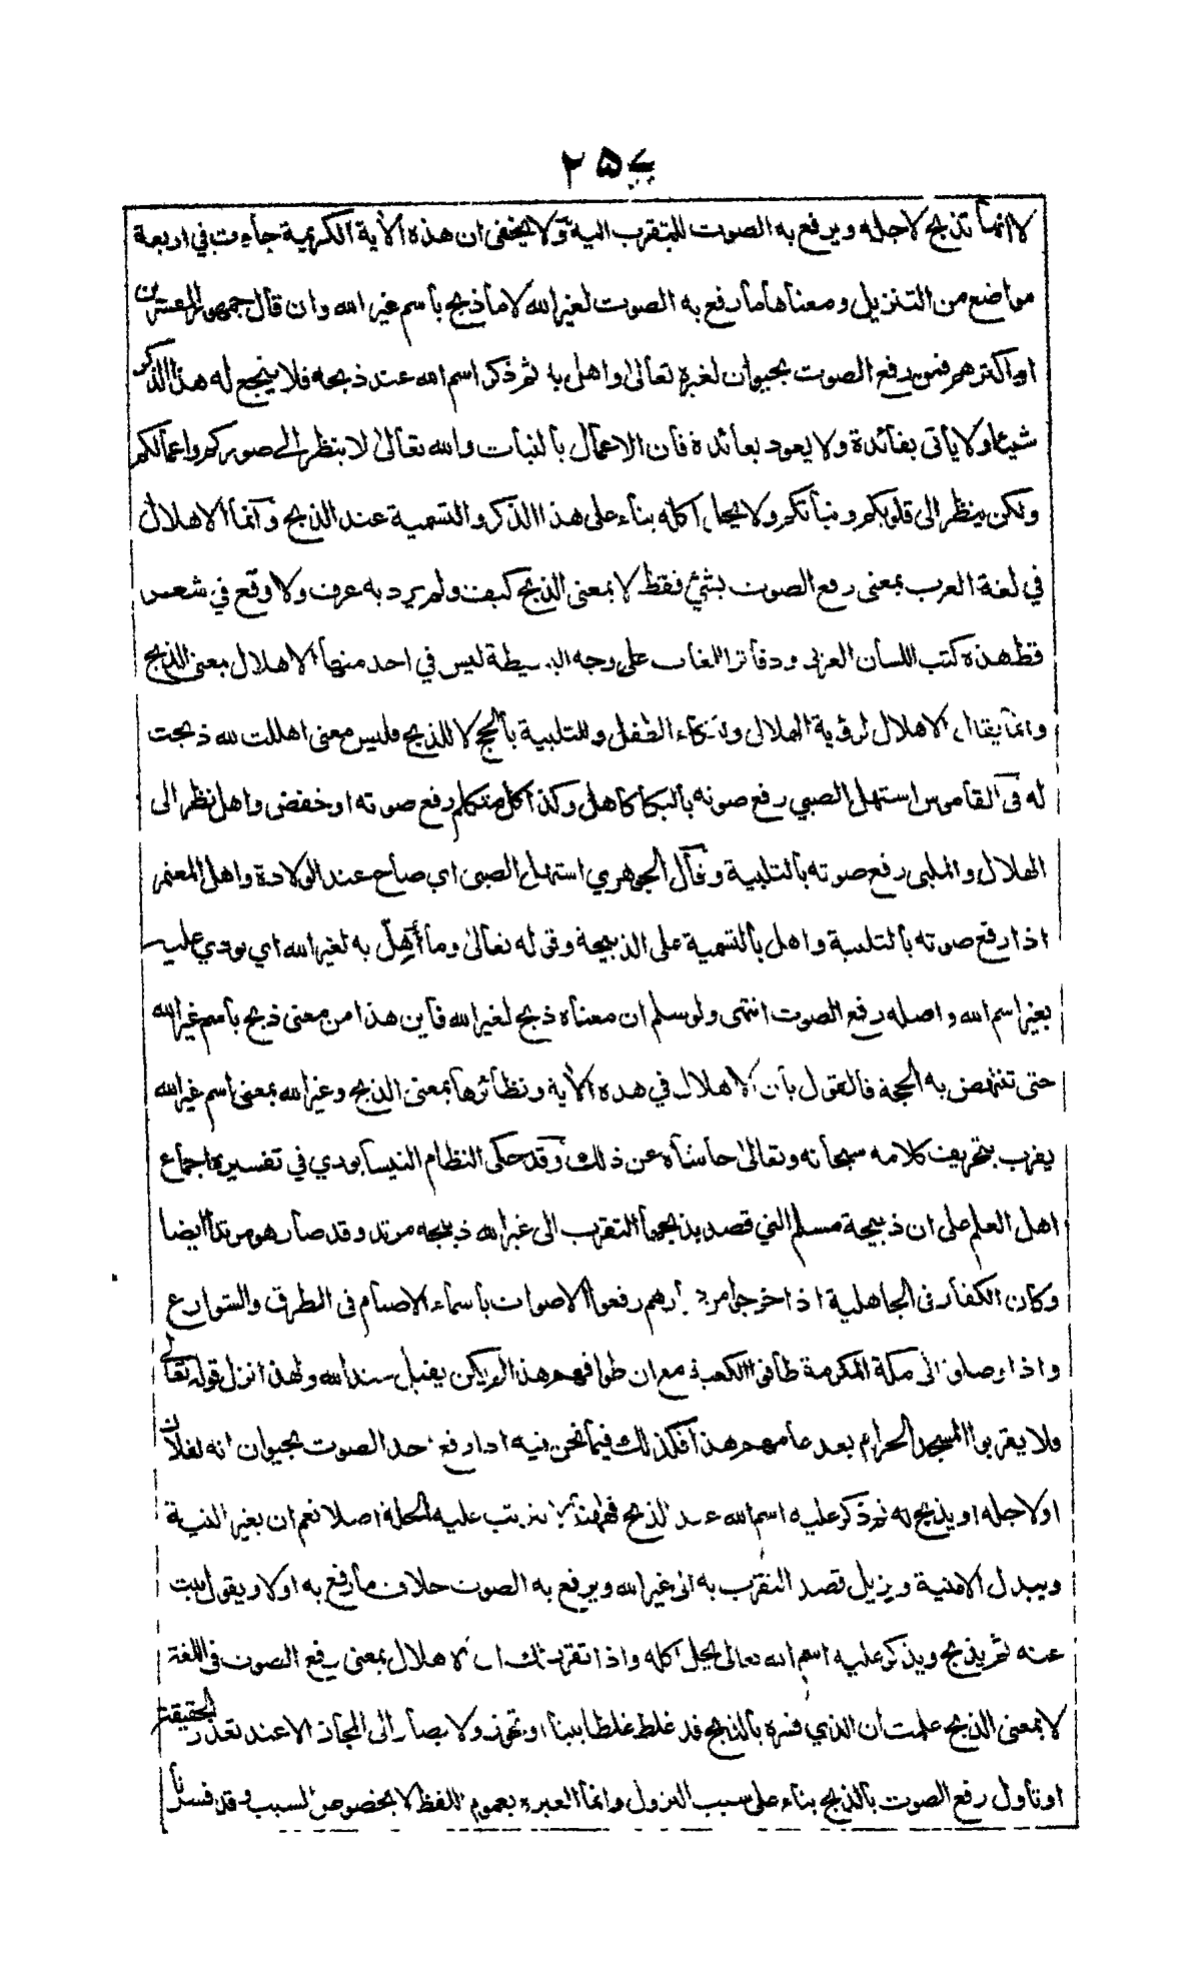 ٢٥٧
لا انما تذبح لاجله ويرفع به الصوت للتقرب اليه ولا يخفى ان هذه الأية الكريمة جاءت في اربعة
مواضع من التنزيل ومعناها ما رفع به الصوت لغير الله لا ما ذبح باسم غير الله وان قال جمهور المفسرين
او اكثرهم فمن رفع الصوت بحيوان لغيره تعالى واهل به ثم ذكر اسم الله عند ذبحه فلا ينجع له هذا الذكر
شيئا ولا يأتى بفائدة ولا يعود بعائدة فان الاعمال بالنيات والله تعالى لا ينظر الى صوركم واعمالكم
ولكن ينظر الى قلوبكم ونياتكم ولا يحل اكله بناء على هذا الذكر والتسمية عند الذبح وانما الاهلال
في لغة العرب بمعنى رفع الصوت بشئ فقط لا بمعنى الذبح كيف ولم يرد به عرف ولا وقع في شعر
قط هذه كتب اللسان العربى ودفاتر اللغات على وجه البسيطة ليس في احد منها الاهلال بمعنى الذبح
وانما يقال الاهلال لرؤية الهلال وبكاء الطفل وللتلبية بالحج لا للذبح فليس معنى اهللت لله ذبحت
له فى القاموس استهل الصبي رفع صوته بالبكا كاهل وكذا كل متكلم رفع صوته او خفض واهل نظر الى
الهلال والملبى رفع صوته بالتلبية وقال الجوهري استهل الصبى اى صاح عند الولادة واهل المعتمر
اذا رفع صوته بالتلبية واهل بالتسمية على الذبيحة وقوله تعالى وما أُهِلّ به لغير الله اي نودي عليه
بغير اسم الله واصله رفع الصوت انتهى ولو سلم ان معناه ذبح لغير الله فأين هذا من معنى ذبح باسم غير الله
حتى تنتهض به الحجة فالقول بان الاهلال في هذه الأية ونظائرها بمعنى الذبح وغير الله بمعنى اسم غير الله
يقرب بتحريف كلامه سبحانه وتعالى حاشاه عن ذلك وقد حكى النظام النيسابوري في تفسيره اجماع
اهل العلم على ان ذبيحة مسلم التي قصد بذبحها التقرب الى غير الله ذبيحه مرتد وقد صار هو مرتدا ايضا
وكان الكفار فى الجاهلية اذا خرجوا من ديارهم رفعوا الاصوات باسماء الاصنام فى الطرق والشوارع
واذا وصلوا الى مكة المكرمة طافوا الكعبة مع ان طوافهم هذا لم يكن يقبل عند الله ولهذا نزل قوله تعالى
فلا يقربوا المسجد الحرام بعد عامهم هذا فكذلك فيما نحن فيه اذا رفع احد الصوت بحيوان انه لفلان
او لاجله او يذبح له ثم ذكر عليه اسم الله عند الذبح فهذا لا يترتب عليه الحلة اصلا نعم ان بغير النية
ويبدل الامنية ويزيل قصد التقرب به الى غير الله ويرفع به الصوت خلاف ما رفع به اولا ويقول تبت
عنه ثم يذبح ويذكر عليه اسم الله تعالى يحل اكله واذا تقرر لك ان الاهلال بمعنى رفع الصوت فى اللغة
لا بمعنى الذبح علمت ان الذي فسره بالذبح قد غلط غلطا بينا او تجوز ولا يصار الى المجاز الا عند تعذر الحقيقة
او تأول رفع الصوت بالذبح بناء على سبب النزول وانما العبرة بعموم اللفظ لا بخصوص السبب وقد فسرنا